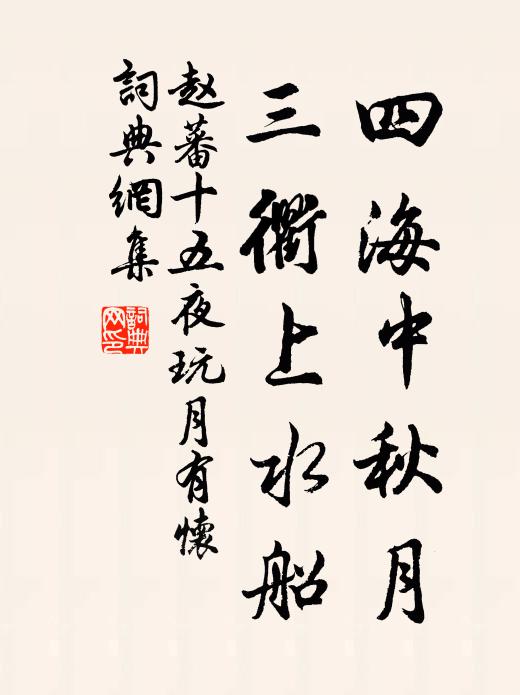 四海中秋月
三衢上水船
赵蕃十五夜玩月有懷
詞典網集
詞典
网印